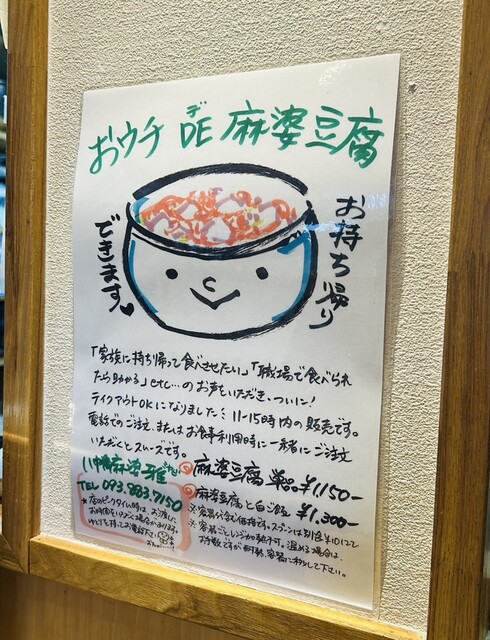 おウチ DE デ 麻婆豆腐
お持ち帰り
できます♥
「家族に持ち帰って食べさせたい」「職場で食べられ
たら助かる」etc…のお声をいただき、ついに!
テイクアウトOKになりました! 11-15時内の販売です。
電話でのご注文、またはお食事利用時に一緒にご注文
いただくとスムーズです。
麻婆雅
TEL 093.883.7150
※店のピークタイム時は、お渡しに
お時間をいただく場合があります。
ゆとりを持ってお電話下さい
◎麻婆豆腐 単品 ¥1150-
◎麻婆豆腐と白ご飯 ¥1,300-
※容器代含む価格です。スプーンは別途¥10にて
※容器ごとレンジ加熱不可。温める場合は、
お手数ですが耐熱容器に移して下さい。